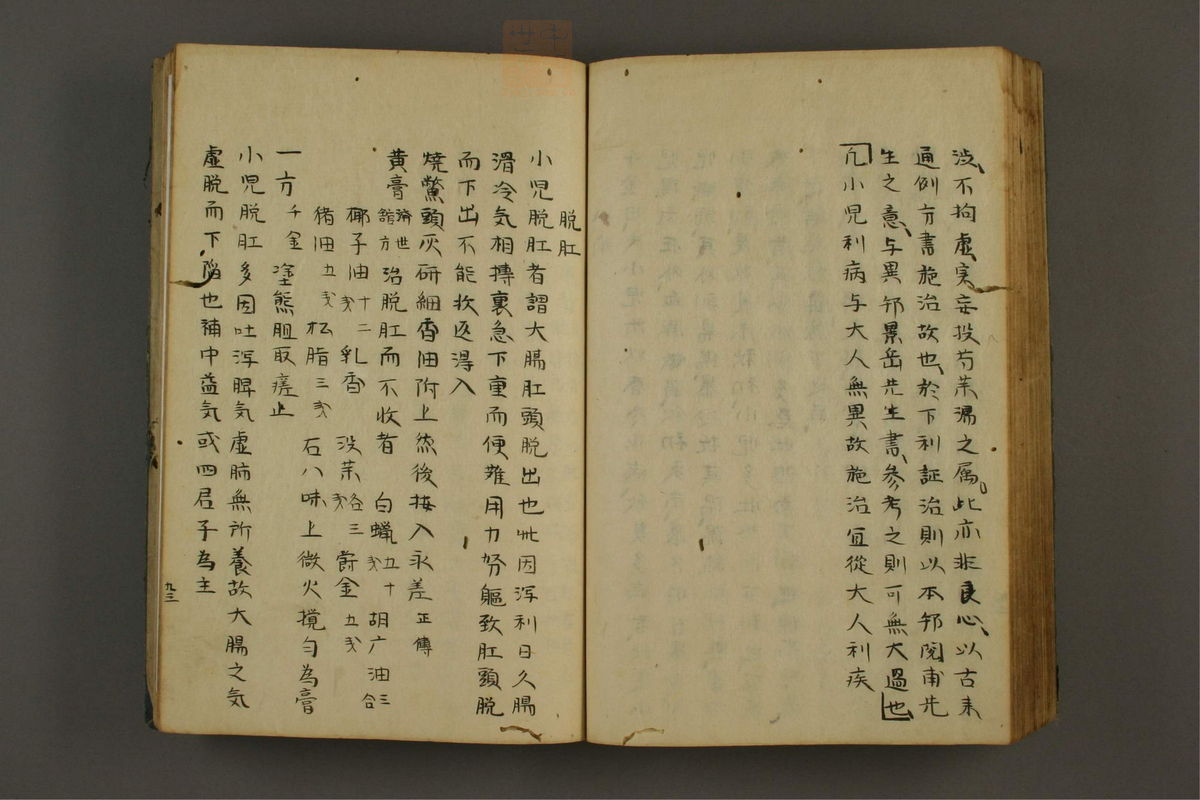 渋不拘虚実妄投芍茱濇之属此亦非良心以古来
通例方書施治故也於下利証治則以本邦閲甫先
生之意与異邦景岳先生書参考之則可無大過也
凡小児利病与大人無異故施治宜從大人利疾
脱肛
小児脱肛者謂大膓肛頭脱出也此因泻利日久膓
滑冷気相摶裏急下重而便難用力努軀致肛頭脱
而下出不能收返得入
燒鱉頭灰研細香油附上然後按入永差 正傳
黄膏 済世舘方 治脱肛而不收者 白蝋五十戔 胡广油三合
椰子油十二戔 乳香 没茱各三戔 欝金五戔
猪油五戔 松脂三戔 右八味上微火攪匀為膏
一方 千金 塗熊胆取瘥止
小児脱肛多因吐泻脾気虚肺無所養故大膓之気
虚脱而下陥也補中益気或四君子為主
九三